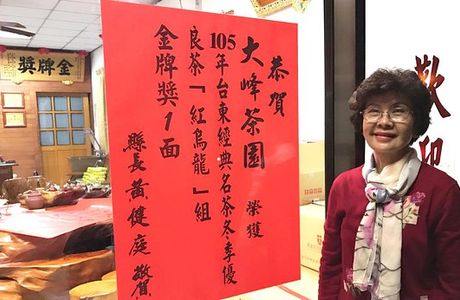 恭賀
大峰茶園 榮獲
105年台東經典名茶冬季優
良茶「紅烏龍」組
金牌獎1面
縣長黃健庭 敬賀
金牌獎
歡迎